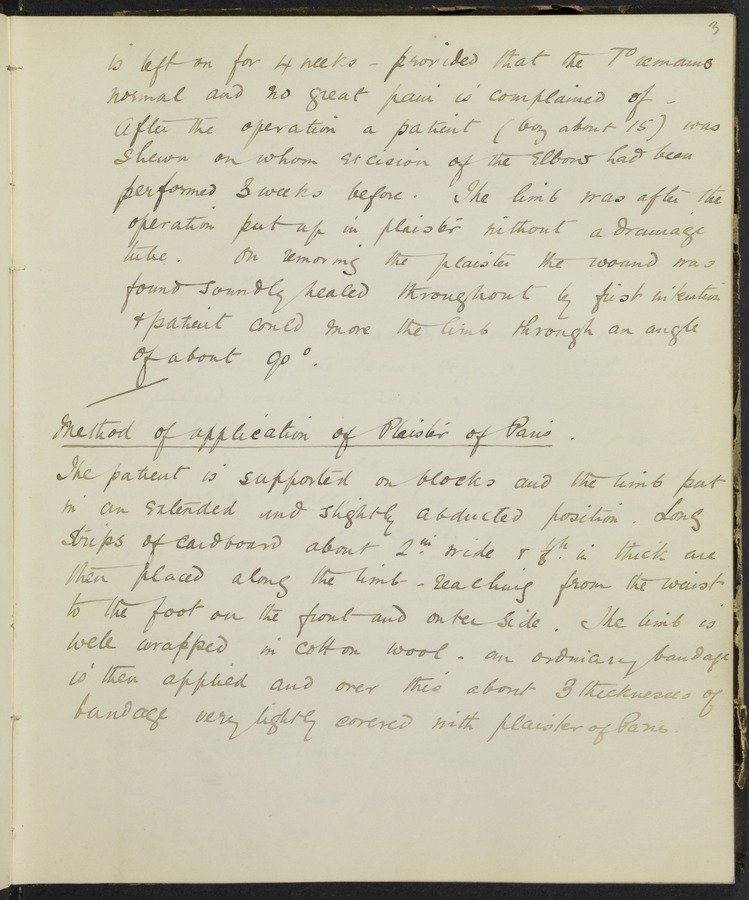 3
is left on for 4 weeks - provided that the T° remains
normal and no great pain is complained of -
After the operation a patient (boy about 15) was
shewn on whom excision of the Elbow had been
performed 3 weeks before. The limb was after the
operation put up in plaister without a drainage
tube. On removing the plaister the wound was
found soundly healed throughout by first intention
& patient could move the limb through an angle
of about 90°.
Method of application of Plaister of Paris.
The patient is supported on blocks and the limb put
in an extended and slightly abducted position. Long
strips of cardboard about 2 in wide & 1/8th in thick are
then placed along the limb - reaching from the waist
to the foot on the front and outer side. The limb is
well wrapped in cotton wool - an ordinary bandage
is then applied and over this about 3 thicknesses of
bandage very lightly covered with plaister of Paris.